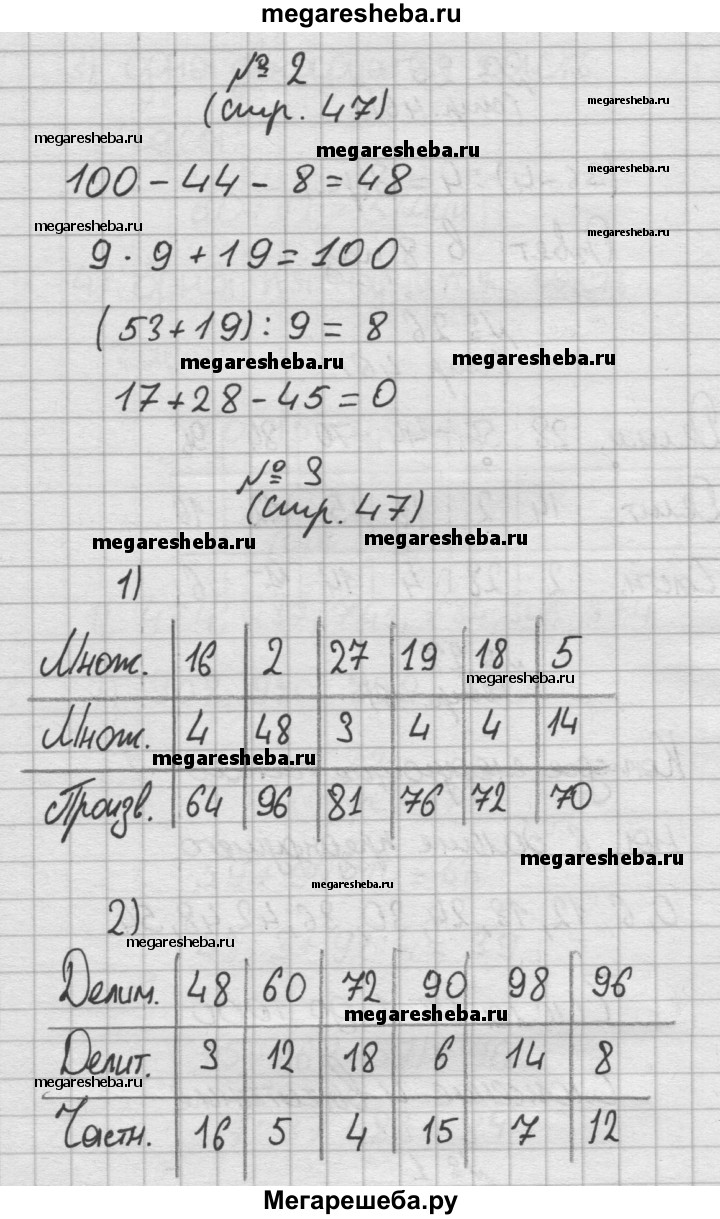 megaresheba.ru
№ 2
(стр. 47)
megaresheba.ru
megaresheba.ru
megaresheba.ru
megaresheba.ru
100 - 44 - 8 = 48
megaresheba.ru
megaresheba.ru
9 · 9 + 19 = 100
(53 + 19) : 9 = 8
megaresheba.ru
megaresheba.ru
17 + 28 - 45 = 0
№ 3
(стр. 47)
megaresheba.ru
megaresheba.ru
1)
Множ. 16 2 27 19 18 5
megaresheba.ru
Множ. 4 48 3 4 4 14
megaresheba.ru
Произв. 64 96 81 76 72 70
megaresheba.ru
megaresheba.ru
2)
megaresheba.ru
Делим. 48 60 72 90 98 96
megaresheba.ru
Делит. 3 12 18 6 14 8
megaresheba.ru
Частн. 16 5 4 15 7 12
Мегарешеба.ру